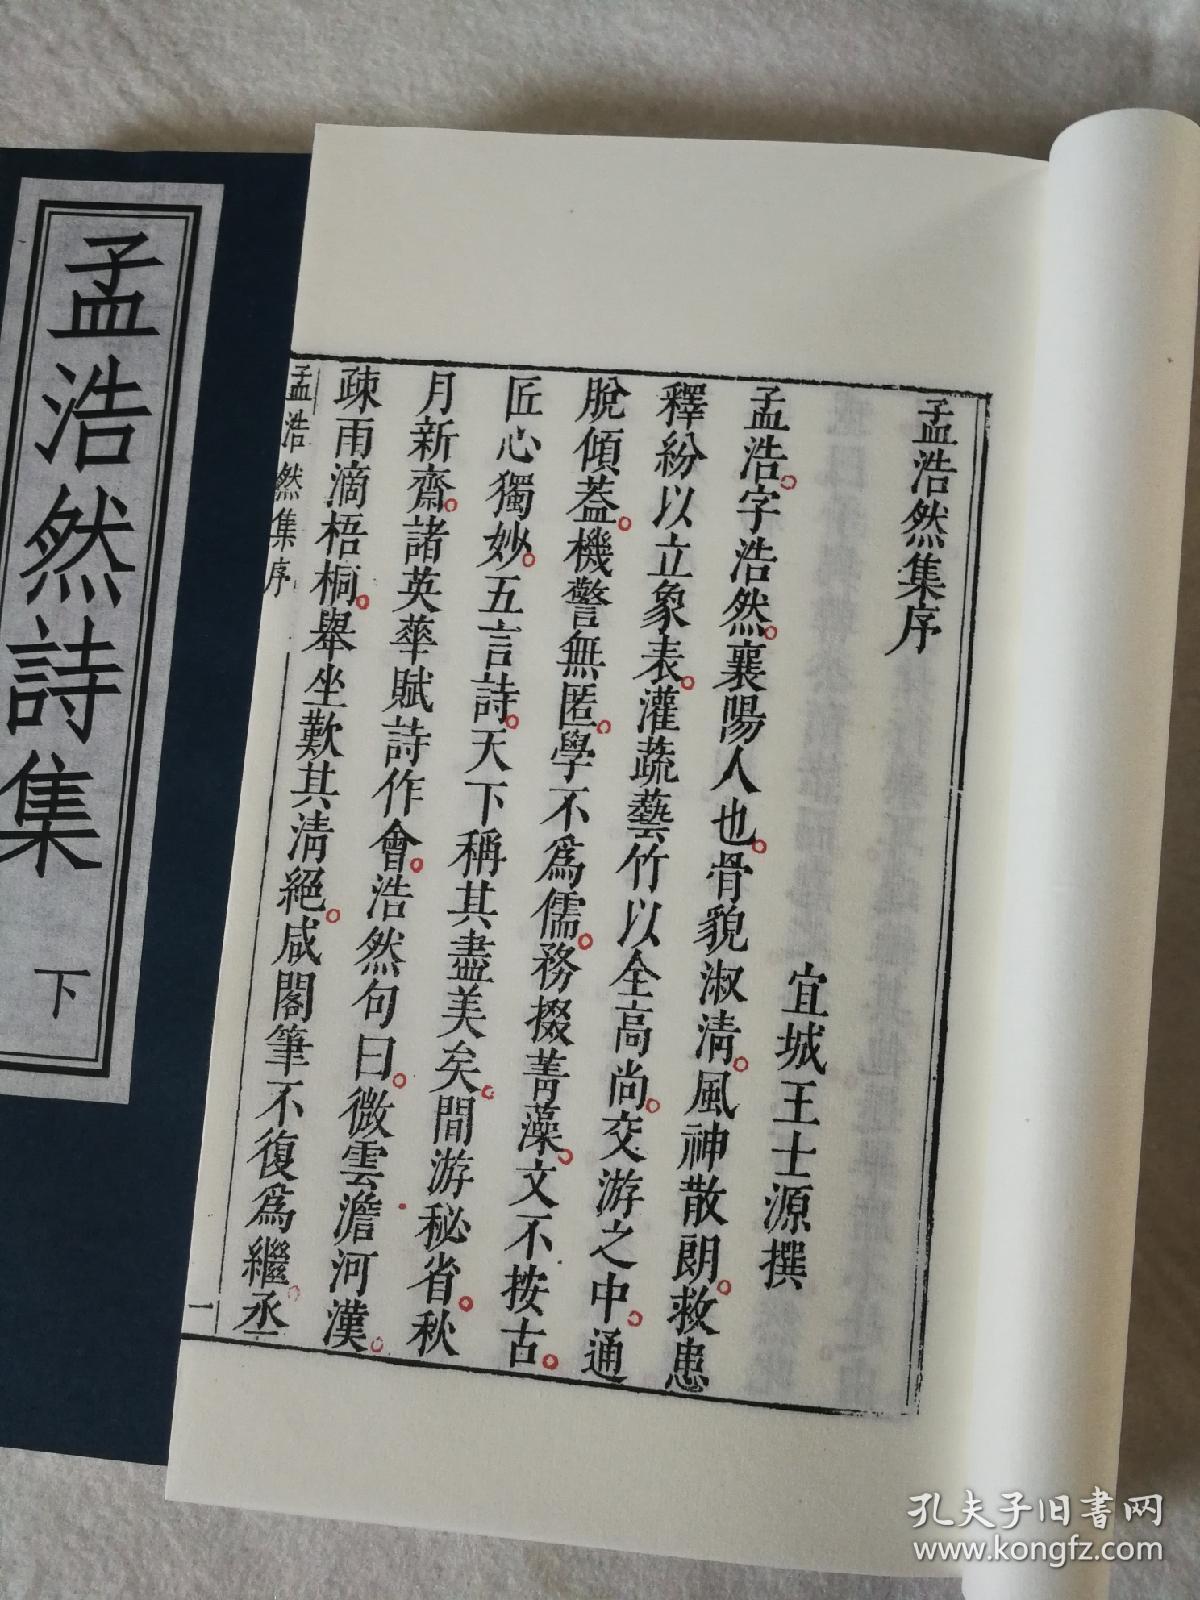 孟浩然集序
宜城王士源撰
孟浩。字浩然。襄陽人也。骨貌淑淸。風神散朗。救患
釋紛以立象表。灌蔬藝竹以全高尚。交游之中。通
脫傾蓋。機警無匿。學不爲儒。務掇菁藻。文不按古。
匠心獨妙。五言詩。天下稱其盡美矣。間游秘省。秋
月新齋。諸英華賦詩作會。浩然句曰。微雲澹河漢。
疎雨滴梧桐。舉坐歎其淸絕。咸閣筆不復爲繼。丞
孟浩然集序
一
孟浩然詩集
下
孔夫子旧書网
www.kongfz.com